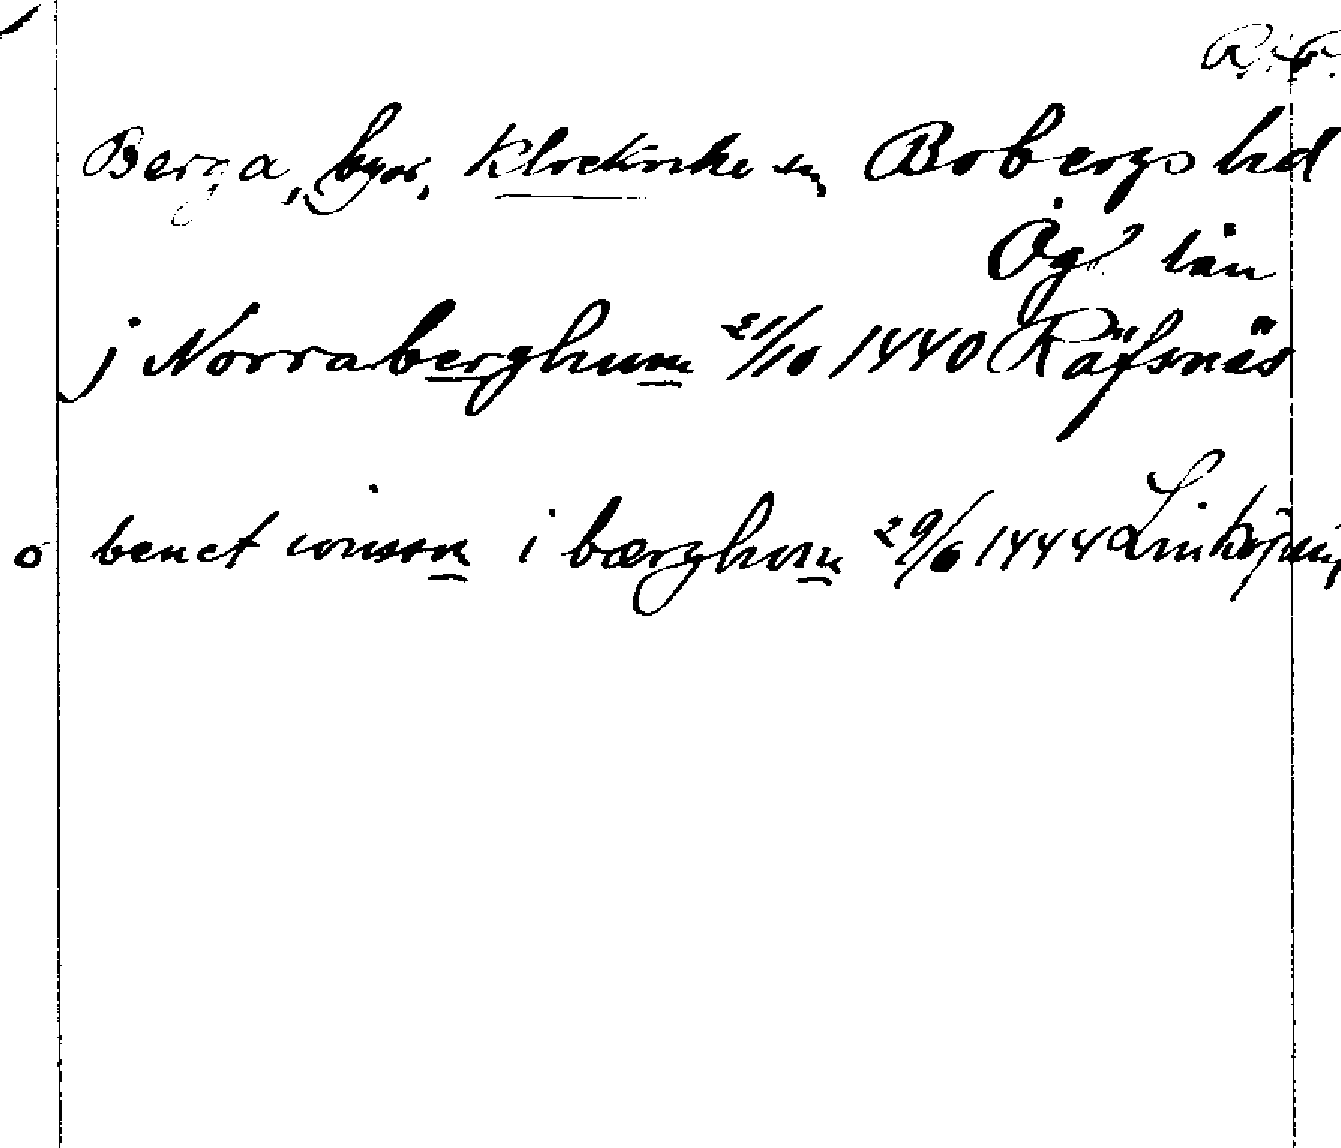 R.A.
Berga, byar, Klockrike sn, Bobergs hd
Ög. län
j Norraberghum 21/10 1440 Räfsnäs
o benct ionsson i bærghom 29/6 1444 Linköping